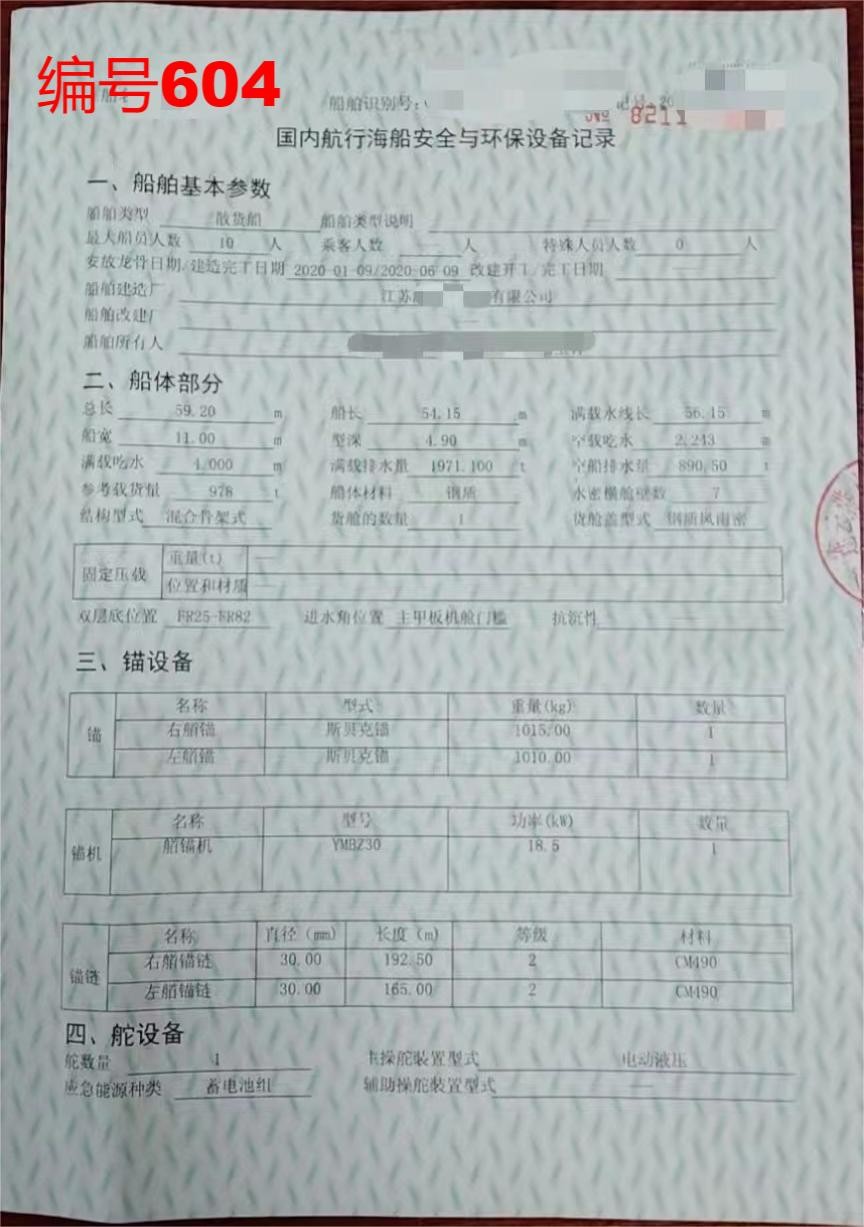 编号604
船舶识别号:
记号:20
№ 8211
国内航行海船安全与环保设备记录
一、船舶基本参数
船舶类型 散货船 船舶类型说明 —
最大船员人数 10 人 乘客人数 — 人 特殊人员人数 0 人
安放龙骨日期/建造完工日期 2020-01-09/2020-06-09 改建开工/完工日期 —
船舶建造厂 江苏 有限公司
船舶改建厂 —
船舶所有人
二、船体部分
总长 59.20 m 船长 54.15 m 满载水线长 56.15 m
船宽 11.00 m 型深 4.90 m 空载吃水 2.243 m
满载吃水 4.000 m 满载排水量 1971.100 t 空船排水量 890.50 t
参考载货量 978 t 船体材料 钢质 水密横舱壁数 7
结构型式 混合骨架式 货舱的数量 1 货舱盖型式 钢质风雨密
固定压载 重量(t) —
位置和材质 —
双层底位置 FR25-FR82 进水角位置 主甲板机舱门槛 抗沉性
三、锚设备
锚 名称 型式 重量(kg) 数量
右艏锚 斯贝克锚 1015.00 1
左艏锚 斯贝克锚 1010.00 1
锚机 名称 型号 功率(kW) 数量
艏锚机 YMBZ30 18.5 1
锚链 名称 直径(mm) 长度(m) 等级 材料
右艏锚链 30.00 192.50 2 CM490
左艏锚链 30.00 165.00 2 CM490
四、舵设备
舵数量 1 主操舵装置型式 电动液压
应急能源种类 蓄电池组 辅助操舵装置型式 —